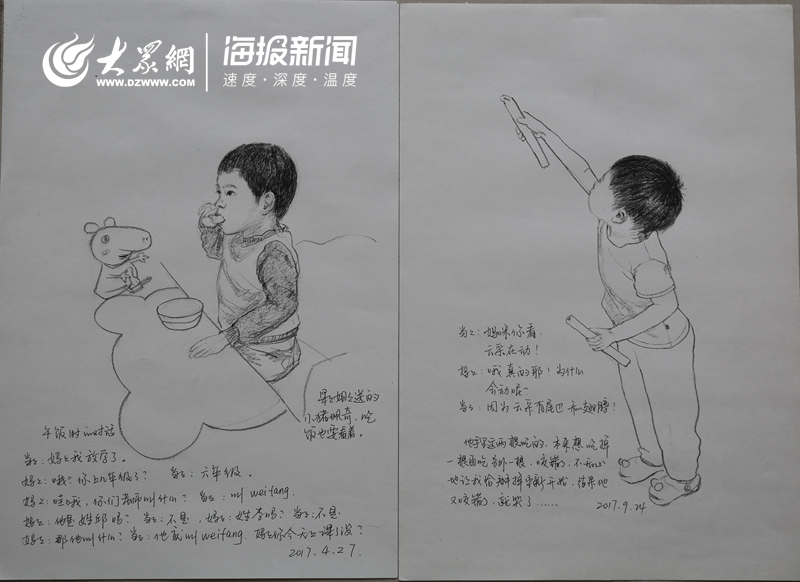 大众網
海报新闻
WWW.DZWWW.COM
速度·深度·温度
姐姐送的
小猪佩奇，吃
饭也要看着。
午饭时的对话
当当：妈妈我放学了。
妈妈：哦？你上几年级了？ 当当：六年级。
妈妈：哇哦，你们老师叫什么？ 当当：叫 weifang.
妈妈：他是姓邱吗？ 当当：不是，妈妈：姓李吗？ 当当：不是
妈妈：那他叫什么？ 当当：他就叫 weifang. 妈妈你今天上课了没？
2017.4.27.
当当：妈咪你看，
云朵在动！
妈妈：哦真的耶！为什么
会动呢~
当当：因为云朵有尾巴和翅膀！
本来想吃掉
一根再吃另外一根，咬错了，不甘心
地让我给掰掉 结果他
又咬错了，就哭了……
2017.9.24